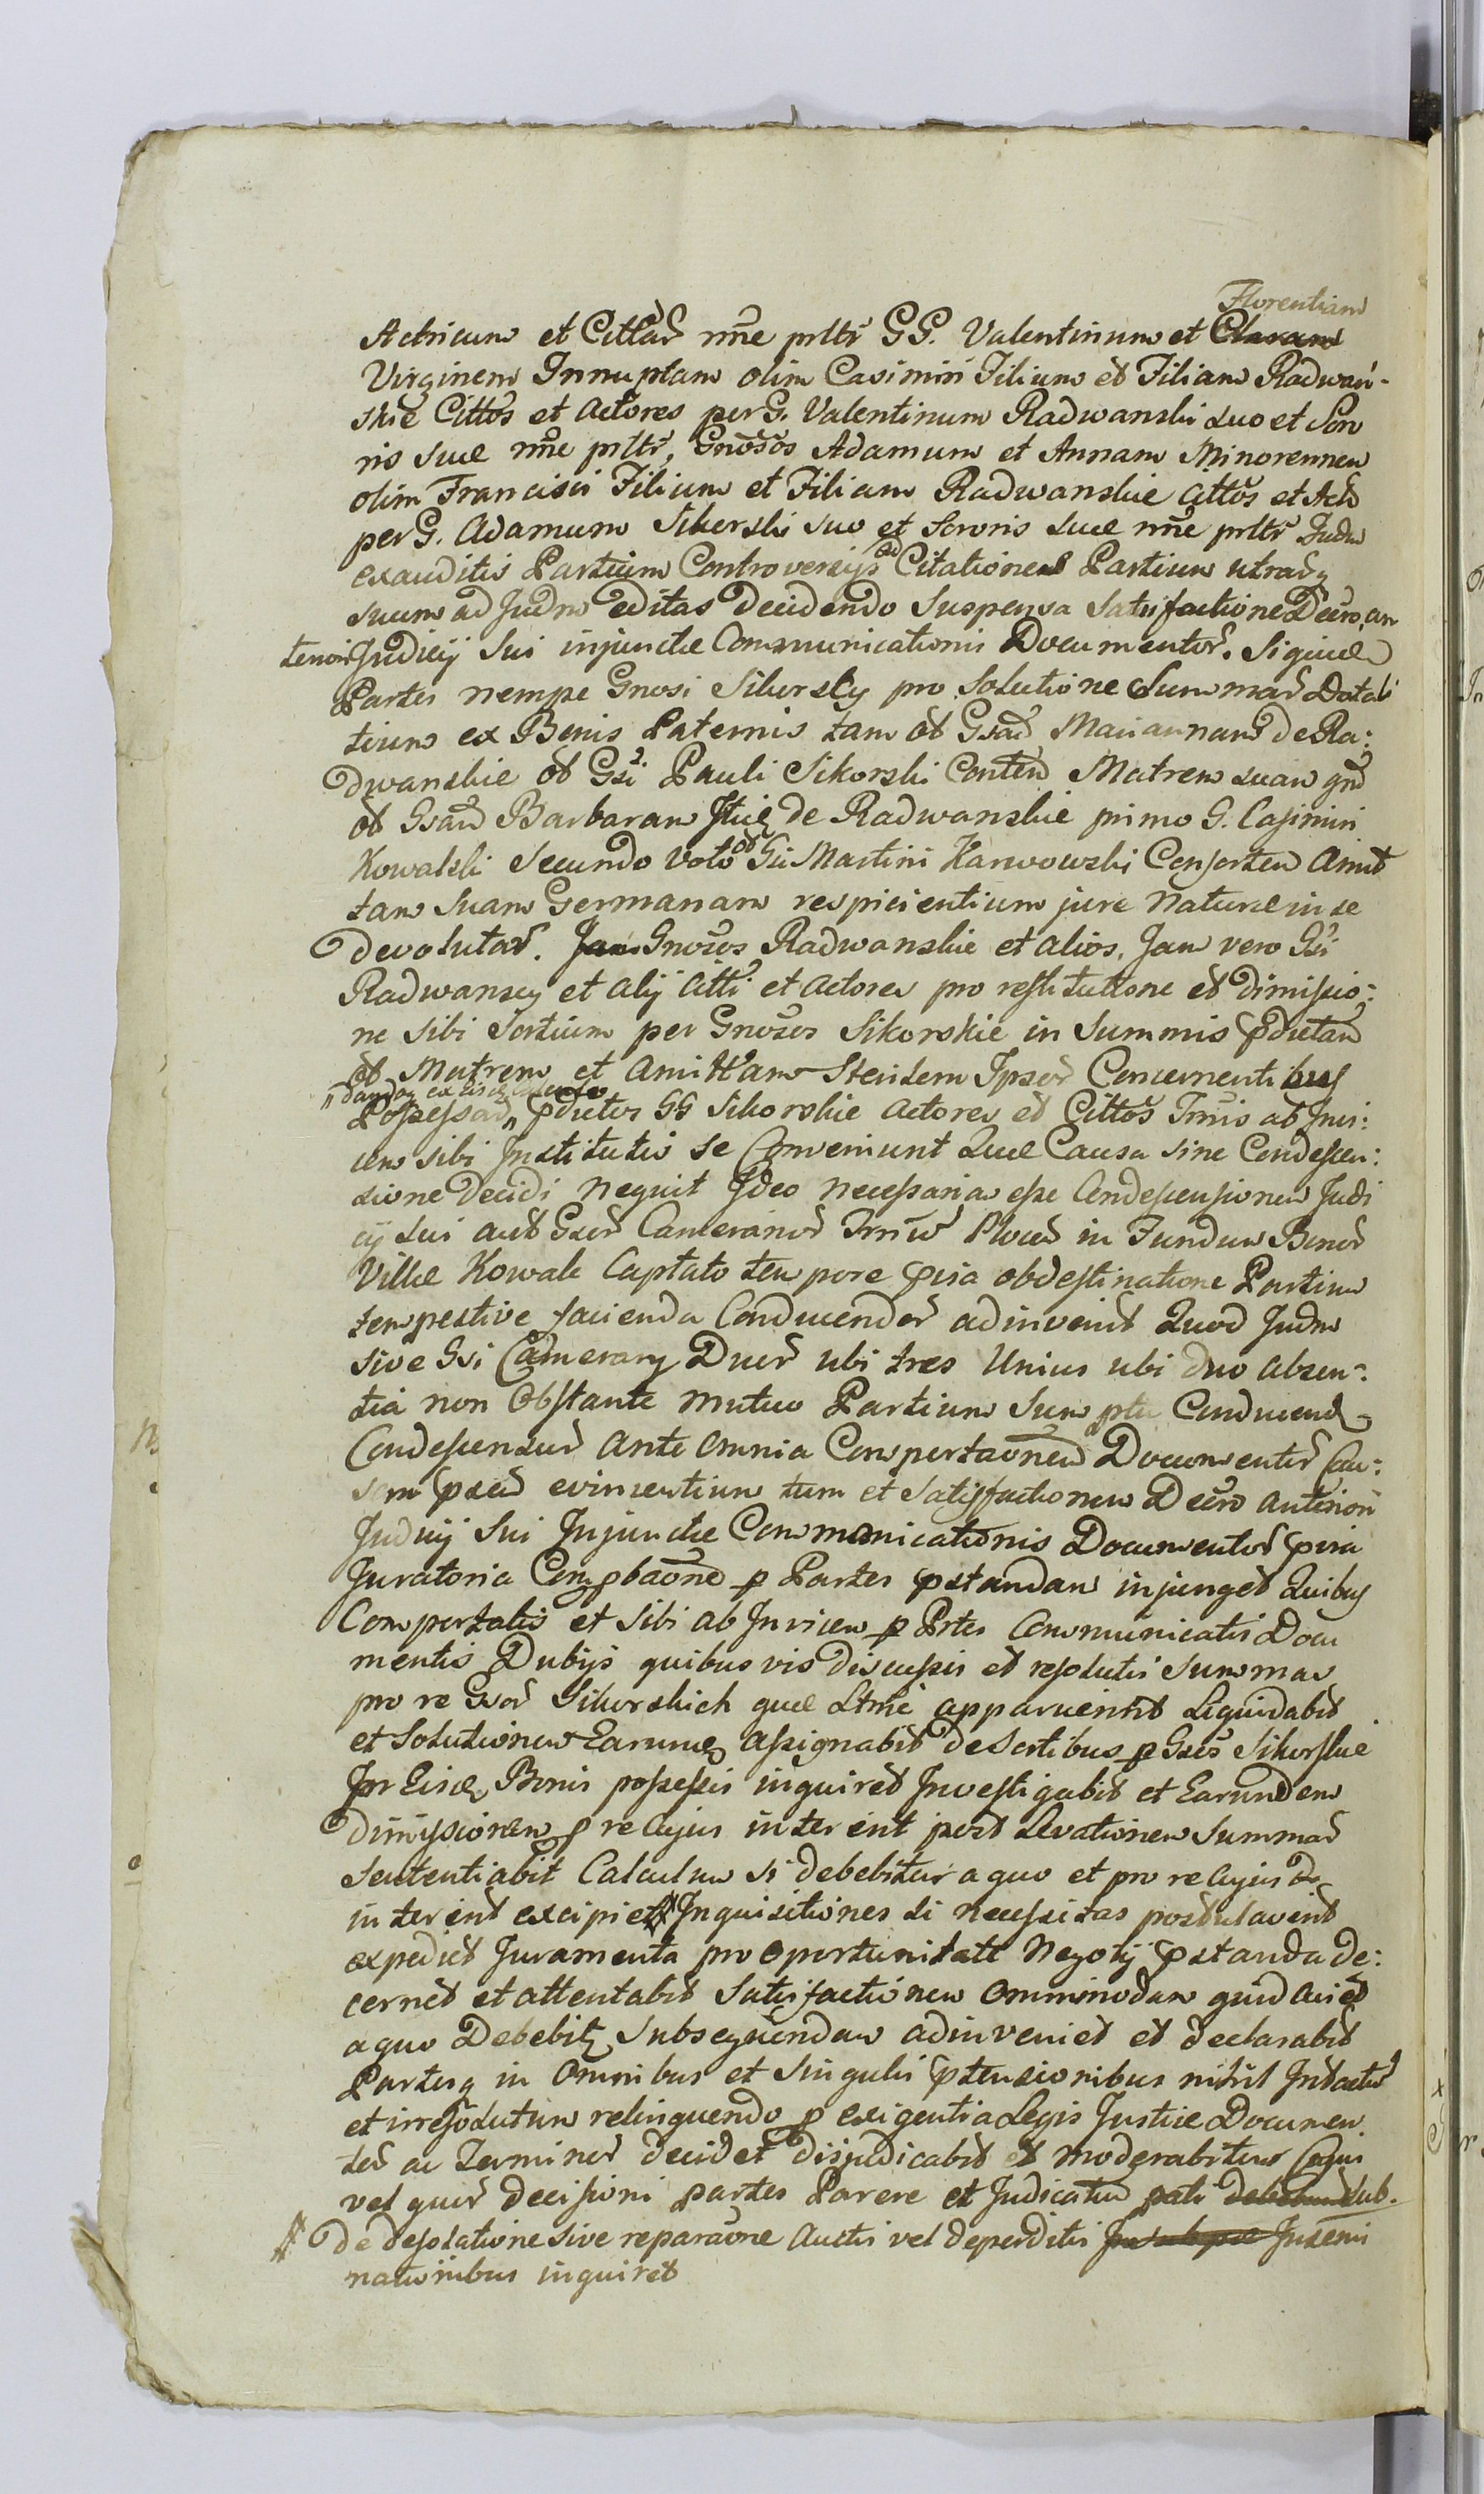 Florentiam
Actricem et Cittar nne prltr GG. Valentinum et Claram
Virginem Innuptam olim Casimiri Filium et Filiam Radwań-
skie Cittos et Actores per G. Valentinum Radwanski suo et Soro
ris suæ nne prltr, Gnosos Adamum et Annam Minorennem
olim Francisci Filium et Filiam Radwanskie Cittos et Acto
per G. Adamum Sikorski suo et Sororis suæ nne prltr Judm
exauditis Partium Controversijs ad Citationes Partium utraq
suum ad Judm editas Decidendo Suspensa Satisfactione Decro, an
teriori Judicij Sui injunctæ Communicationis Documentor. Siquid
Partes nempe Gnosi Sikorscy pro Solutione Summar Dotali
tium ex Bonis Paternis tam ob Gsam Mariannam de Ra:
dwanskie ob Gsi Pauli Sikorski Contem Matrem suam qm
ob Gsam Barbaram Itid de Radwanskie primo G. Casimiri
Kowalski Secundo voto ob Gsi Martini Karwowski Consortem Amit
tam Suam Germanam respicientium jure Naturæ in se
devolutar. Jam Gnosos Radwanskie et alios. Jam vero Gsi
Radwanscy et alij Citti et Actores pro restitutione et dimissio:
ne sibi Sortium per Gnosos Sikorskie in Summis pdictam
ob Matrem et Amittam Itendem Ipsor Concernentibus
Possessar, pdictos GG Sikorskie Actores et Cittos Trmis ab Invi:
cem sibi Institutis se Conveniunt Quæ Causa sine Condescen:
sione Decidi nequit Ideo necessariam esse Condescensionem Judi
cij sui aut Gsor Camerarior Trrw Ploced in Fundum Bonor
Villæ Kowale Captato tempore pvia obdestinatione Partium
tempestive facienda Conducendor adinvenit Quod Judm
sive Gsi Camerary Duor ubi tres Unius ubi duo absen:
tia non Obstante mutuo Partium Sumptu Conducend
Condescensur ante omnia Comportaonem Documentor Cau:
sam psed evincentium tum et Satisfactionem Decro anteriori
Judicij Sui Injunctæ Communicationis Documentor pvia
Juratoria Comprobaone p Partes pstandam injunget Quibus
Comportatis et sibi ab Invicem p Prtes Communicatis Docu
mentis Dubijs quibusvis discussis et resolutis Summas
pro re Gsor Sikorskich quæ Ltme apparuerint Liquidabit
et Solutionem Earumq assignabit de Sortibus p Gsos Sikorskie
In Eisd Bonis possessis inquiret Investigabit et Earundem
dimissionem p re cujus interierit post Levationem Summar
Sententiabit Calculum si debebitur a quo et pro re cujus de
interierit excipiet # Inquisitiones si necessitas postulaverit
expediet Juramenta pro Oportunitate Negotij pstanda de:
cernet et attentabit Satisfactionem Omnimodam quid cui et
a quo Debebit Subsequendam adinveniet et declarabit
Partesq in Omnibus et Singulis ptensionibus nihil Intactum
et irresolutum relinquendo p exigentia Legis Justitiæ Documen
tor ac Terminor decidet disjudicabit et moderabitur Cujus
vel quor decisioni partes Parere et Judicatum pati debebunt sub.
# De desolatione sive reparaone Auctis vel deperditis
nationibus inquiret